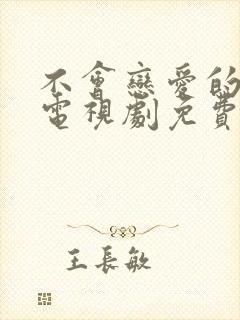 不會戀愛的
電視劇免費
王長敏